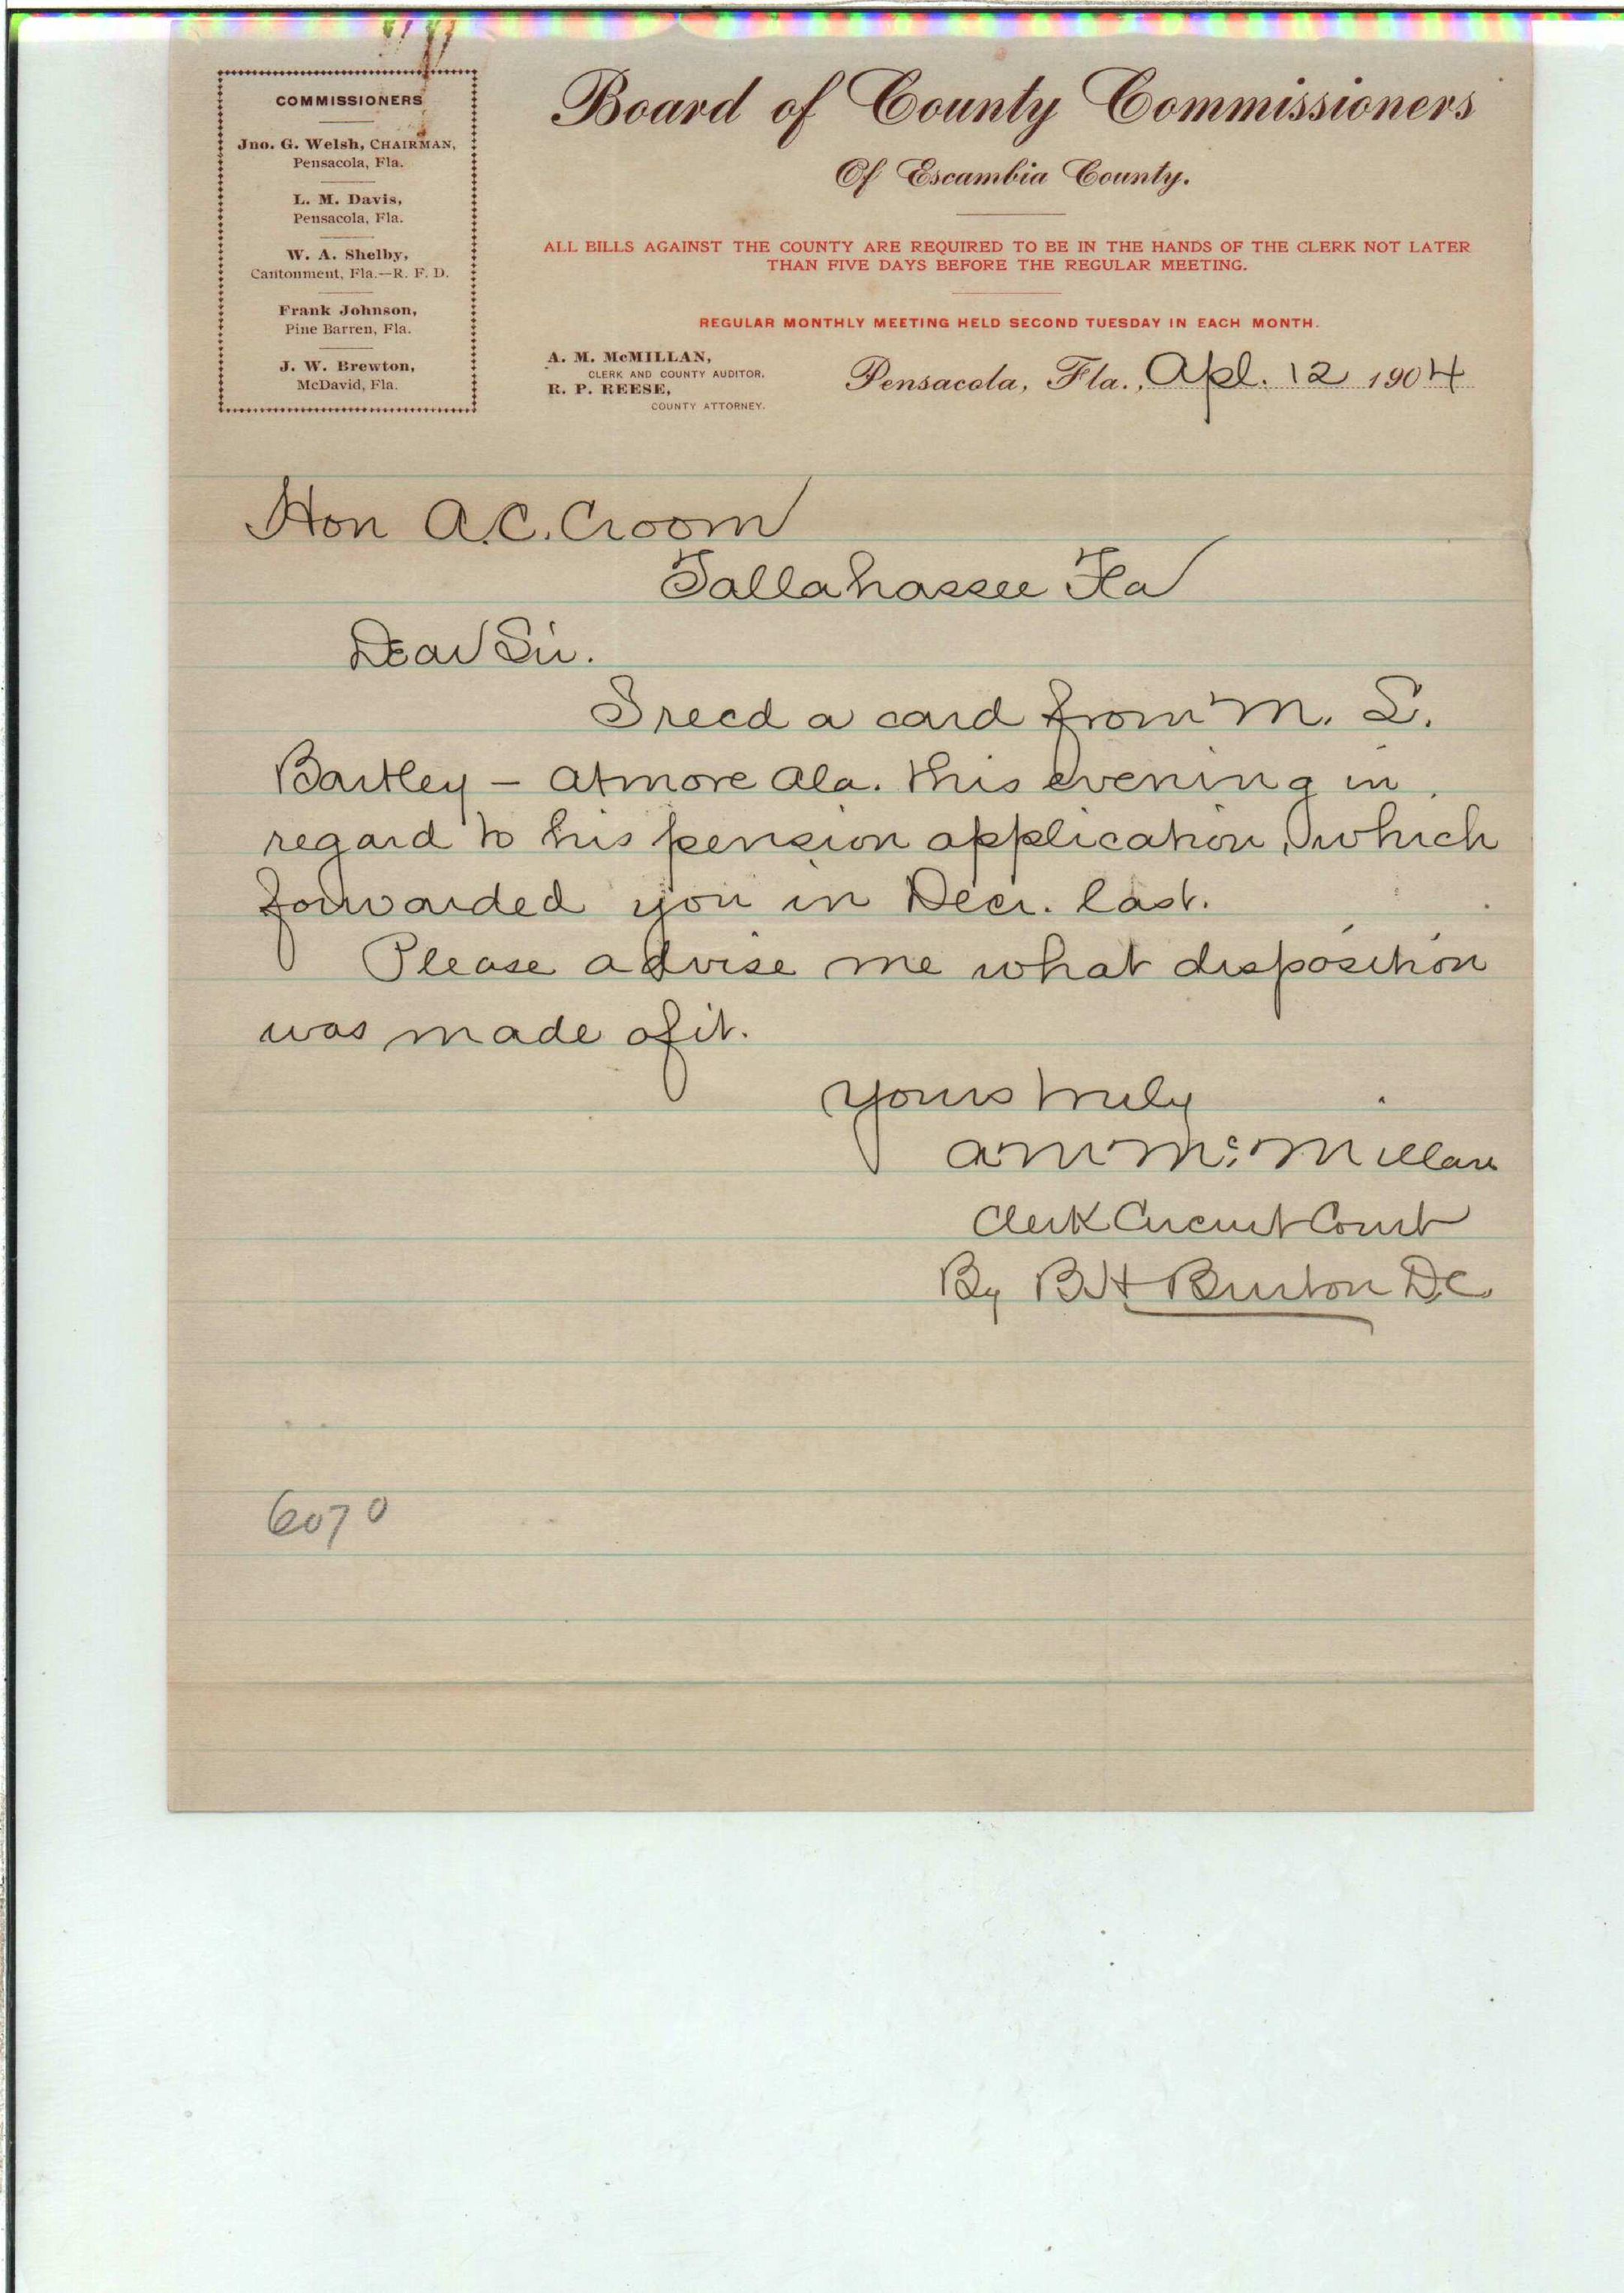 COMMISSIONERS
Jno. G. Welsh, CHAIRMAN,
Pensacola, Fla.
L. M. Davis,
Pensacola, Fla.
W. A. Shelby,
Cantonment, Fla.—R. F. D.
Frank Johnson,
Pine Barren, Fla.
J. W. Brewton,
McDavid, Fla.
Board of County Commissioners
Of Escambia County.
ALL BILLS AGAINST THE COUNTY ARE REQUIRED TO BE IN THE HANDS OF THE CLERK NOT LATER
THAN FIVE DAYS BEFORE THE REGULAR MEETING.
REGULAR MONTHLY MEETING HELD SECOND TUESDAY IN EACH MONTH.
A. M. McMILLAN,
CLERK AND COUNTY AUDITOR.
R. P. REESE,
COUNTY ATTORNEY.
Pensacola, Fla., Apl. 12 1904
Hon A.C. Croom
Tallahassee Fla
Dear Sir.
I recd a card from M. S.
Bartley - Atmore Ala. this evening in
regard to his pension application, which
forwarded you in Decr. last.
Please advise me what disposition
was made of it.
Yours truly
A M McMillan
Clerk Circuit Court
By B H Burton D.C.
6070